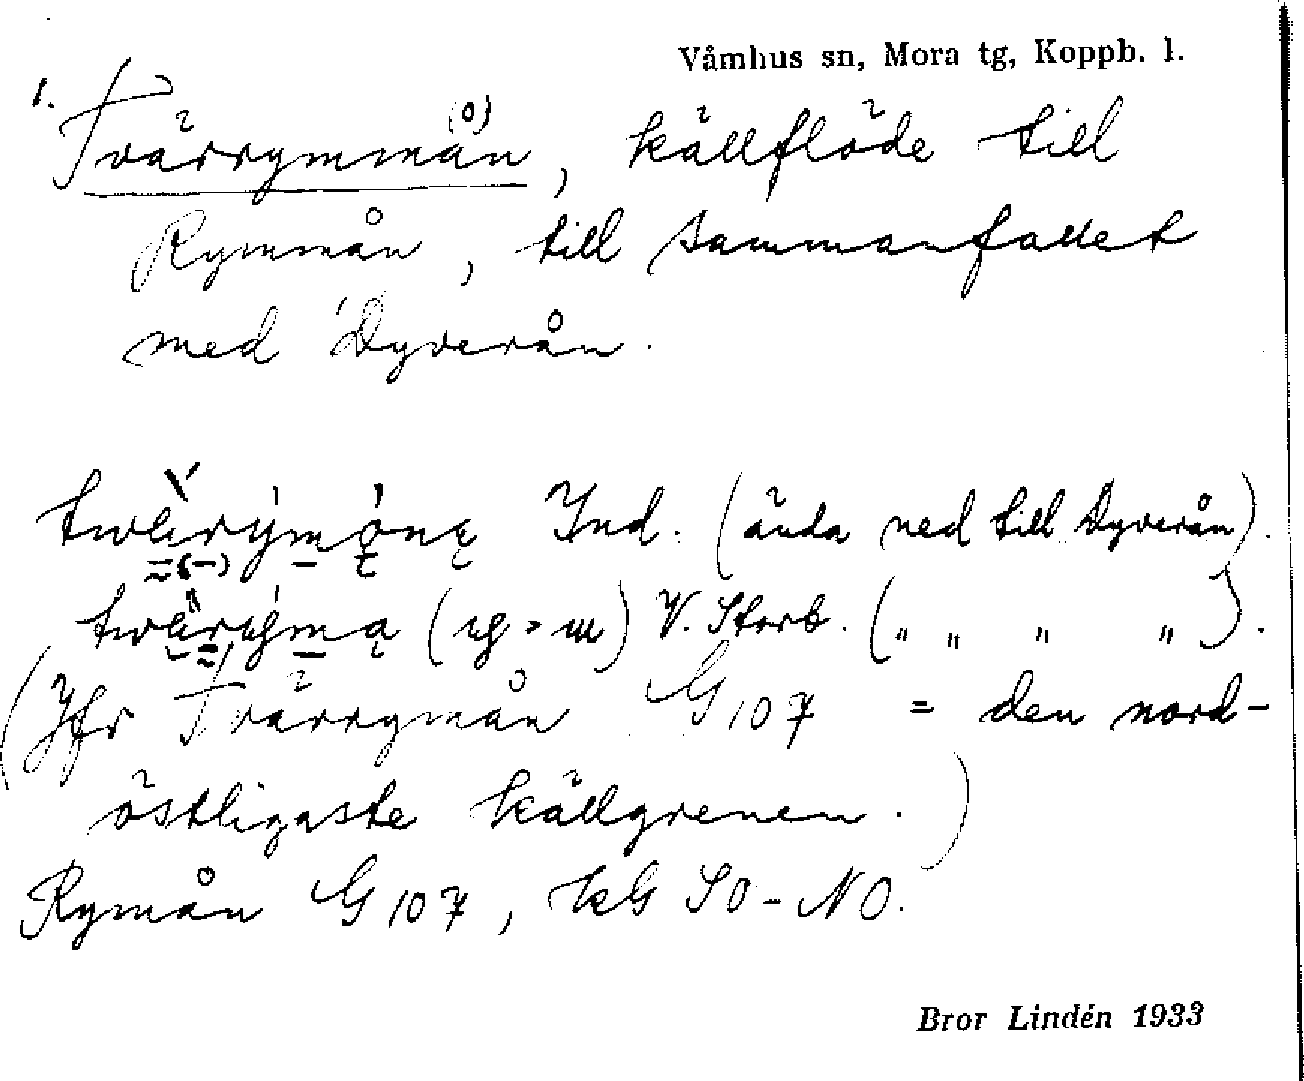 Våmhus sn, Mora tg, Koppb. l.
1. Tvärrymmån, källflöde till
(o)
Rymmån, till sammanfallet
med Dyverån.
Ind. (ända ned till Dyverån).
V. Storb. (" " " ").
(Jfr Tvärrymån G 107 = den nord-
östligaste källgrenen.)
Rymån G 107, kG SO-NO.
Bror Lindén 1933